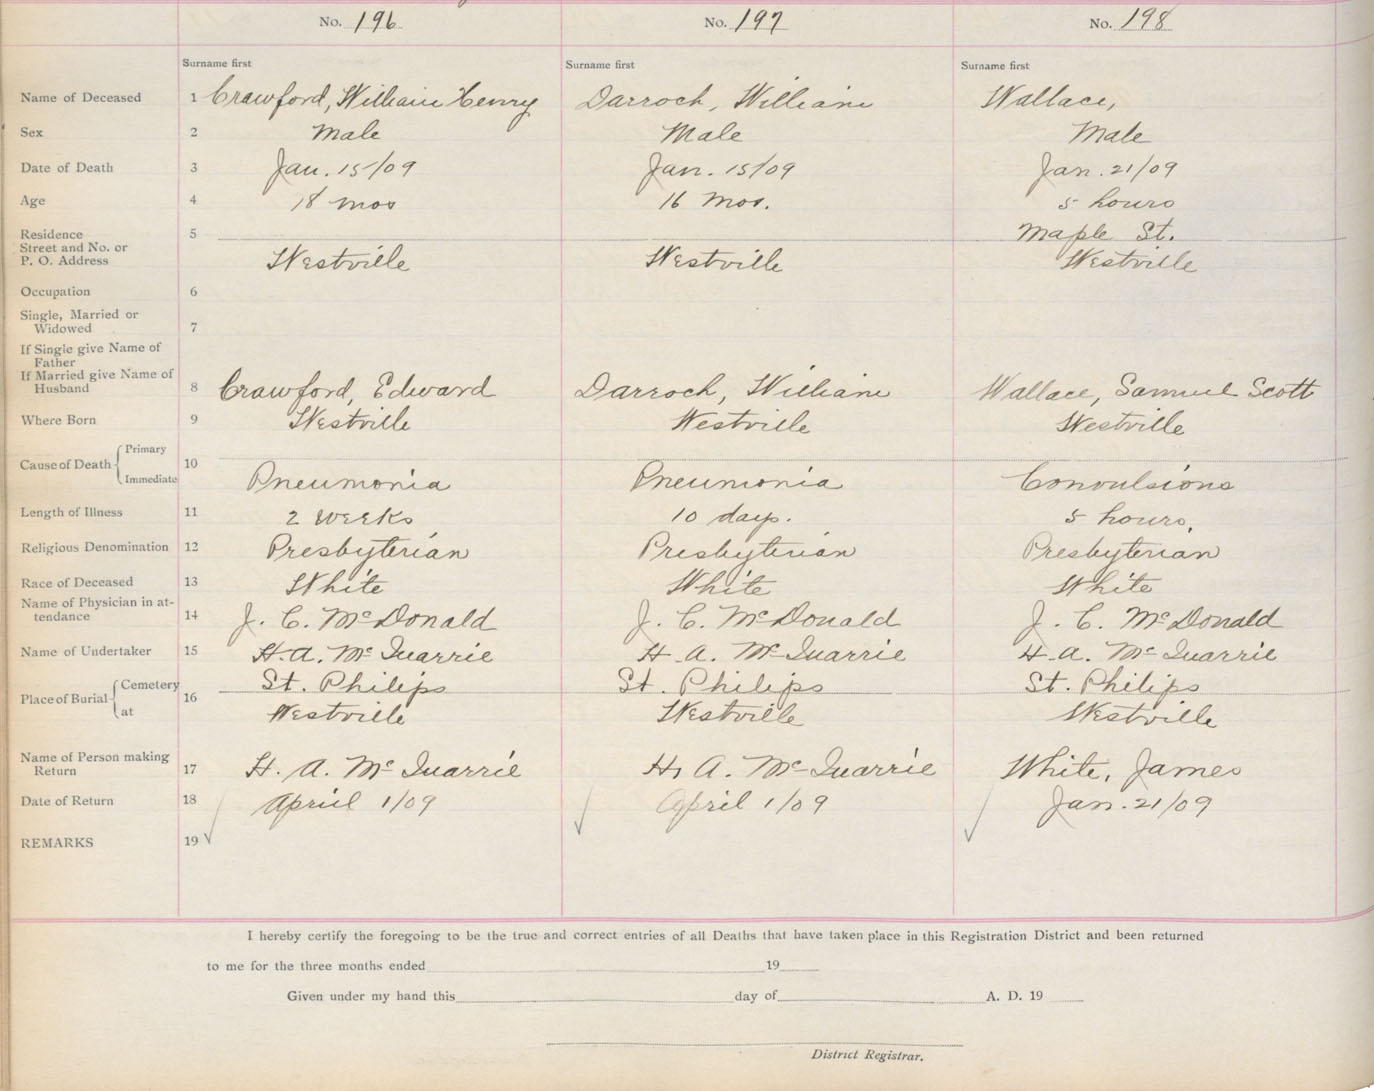 No. 196 No. 197 No. 198
Surname first Surname first Surname first
Name of Deceased 1 Crawford, William Henry Darroch, William Wallace,
Sex 2 Male Male Male
Date of Death 3 Jan. 15/09 Jan. 15/09 Jan. 21/09
Age 4 18 mos 16 mos. 5 hours
Residence 5 Maple St.
Street and No. or
P. O. Address Westville Westville Westville
Occupation 6
Single, Married or
Widowed 7
If Single give Name of
Father
If Married give Name of
Husband 8 Crawford, Edward Darroch, William Wallace, Samuel Scott
Where Born 9 Westville Westville Westville
Cause of Death Primary 10
Immediate Pneumonia Pneumonia Convulsions
Length of Illness 11 2 weeks 10 days. 5 hours.
Religious Denomination 12 Presbyterian Presbyterian Presbyterian
Race of Deceased 13 White White White
Name of Physician in at-
tendance 14 J. C. McDonald J. C. McDonald J. C. McDonald
Name of Undertaker 15 H. A. McQuarrie H. A. McQuarrie H. A. McQuarrie
Place of Burial Cemetery 16 St. Philips St. Philips St. Philips
at Westville Westville Westville
Name of Person making
Return 17 H. A. McQuarrie H. A. McQuarrie White, James
Date of Return 18 April 1/09 April 1/09 Jan. 21/09
REMARKS 19
I hereby certify the foregoing to be the true and correct entries of all Deaths that have taken place in this Registration District and been returned
to me for the three months ended 19
Given under my hand this day of A. D. 19
District Registrar.